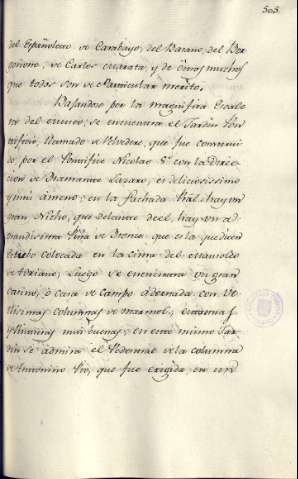 505.
del Españoleto de Carabagio, del Baciano, del Bor
goñone, de Carlos Marata, y de otros muchos
que todos son de Particular merito.
Baxandose por la magnifica Escale
ra del se encuentra el Jardin Pon
tificio, llamado de Velvedere, que fue construi
do por el Pontifice Nicolao 5º con la direc
cion de Bramante Lazaro, es deliciosissimo
y mui ameno: en la fachada Rial hay un
gran Nicho, que delante de el, hay una
grandissima Piña de Bronce que esta
colocada en la cima del mausoleo
de Adriano, Luego se encuentra un gran
Casino, ò Casa de Campo adornada con Ve
llisimas columnas de marmol,
y Pinturas mui buenas; en este mismo Jar
din se admira el Pedestal de la columna
de Antonino Pio, que fue erigida en un